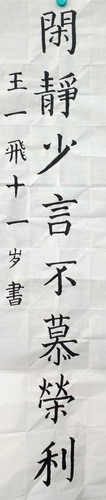 閑靜少言不慕榮利
王一飛十一岁書